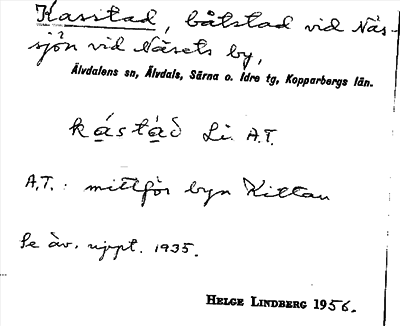 Kasstad, båtstad vid Näs-
sjön vid Näsets by,
Älvdalens sn, Älvdals, Särna o. Idre tg, Kopparbergs län.
kástád Li. A.T.
A.T.: mittför byn Kittan
Se äv. uppt. 1935.
HELGE LINDBERG 1956.